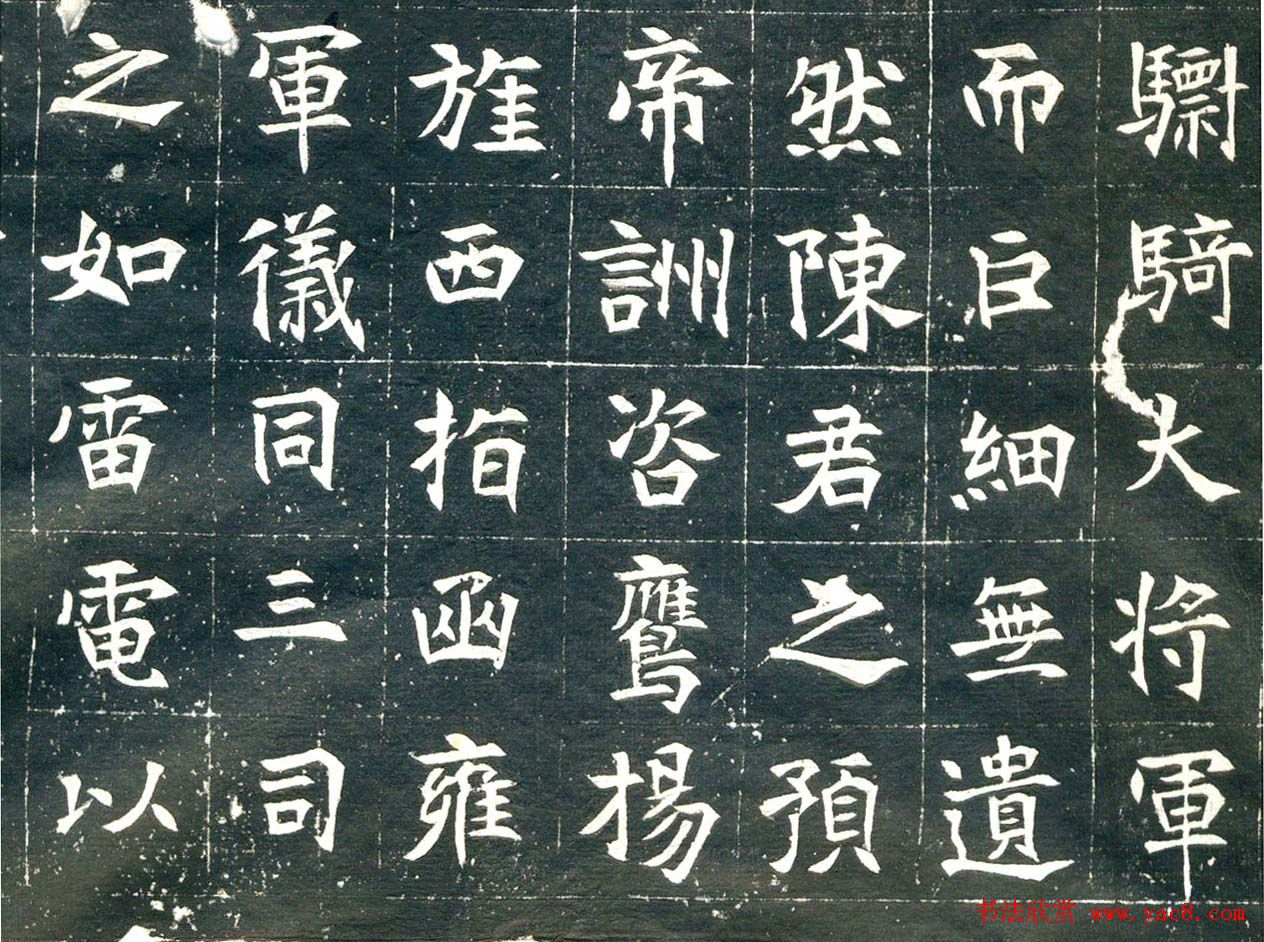 驃騎大将軍
而巨細無遺
然陳君之預
帝詶咨鷹揚
旌西指函雍
軍儀同三司
之如雷電以
书法欣赏 www.yac8.com